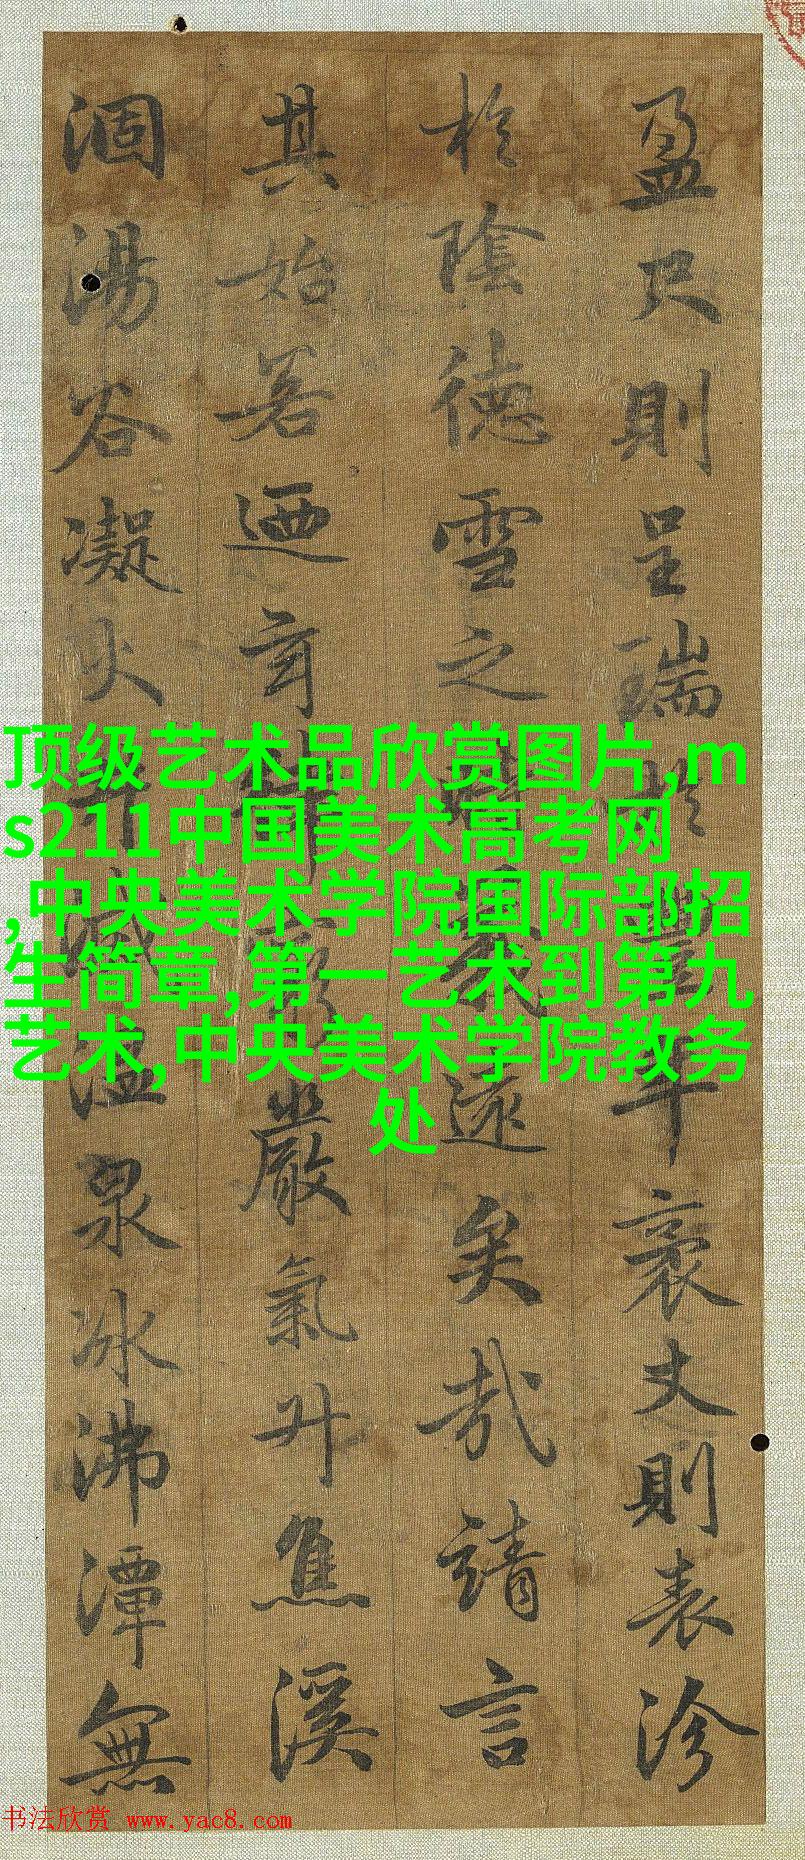 盈尺則呈瑞於年袤丈則表沴
於陰德雪之遠矣哉請言
其始若迺玄嚴氣升焦溪
涸湯谷凝火温泉冰沸潭無
顶级艺术品欣赏图片,m
s211中国美术高考网
,中央美术学院国际部招
生简章,第一艺术到第九
艺术,中央美术学院教务
处
书法欣赏 www.yac8.com